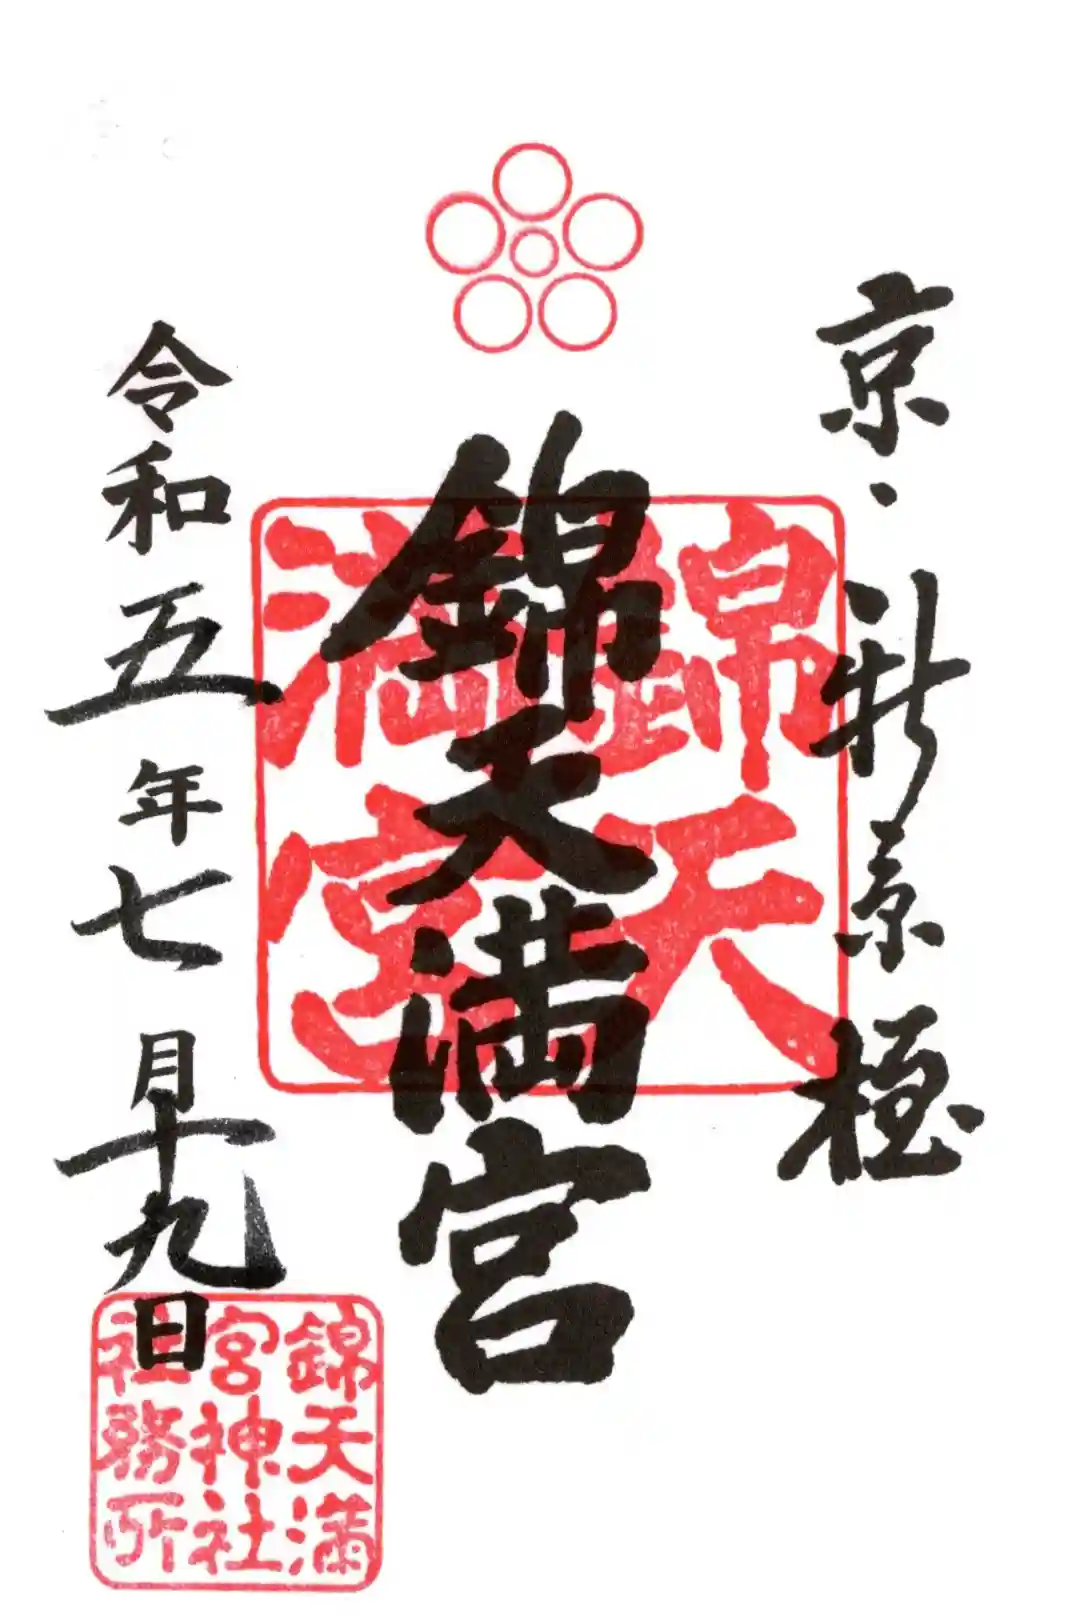 京・新京極
錦天満宮
錦天
満宮
令和五年七月十九日
錦天満
宮神社
社務所